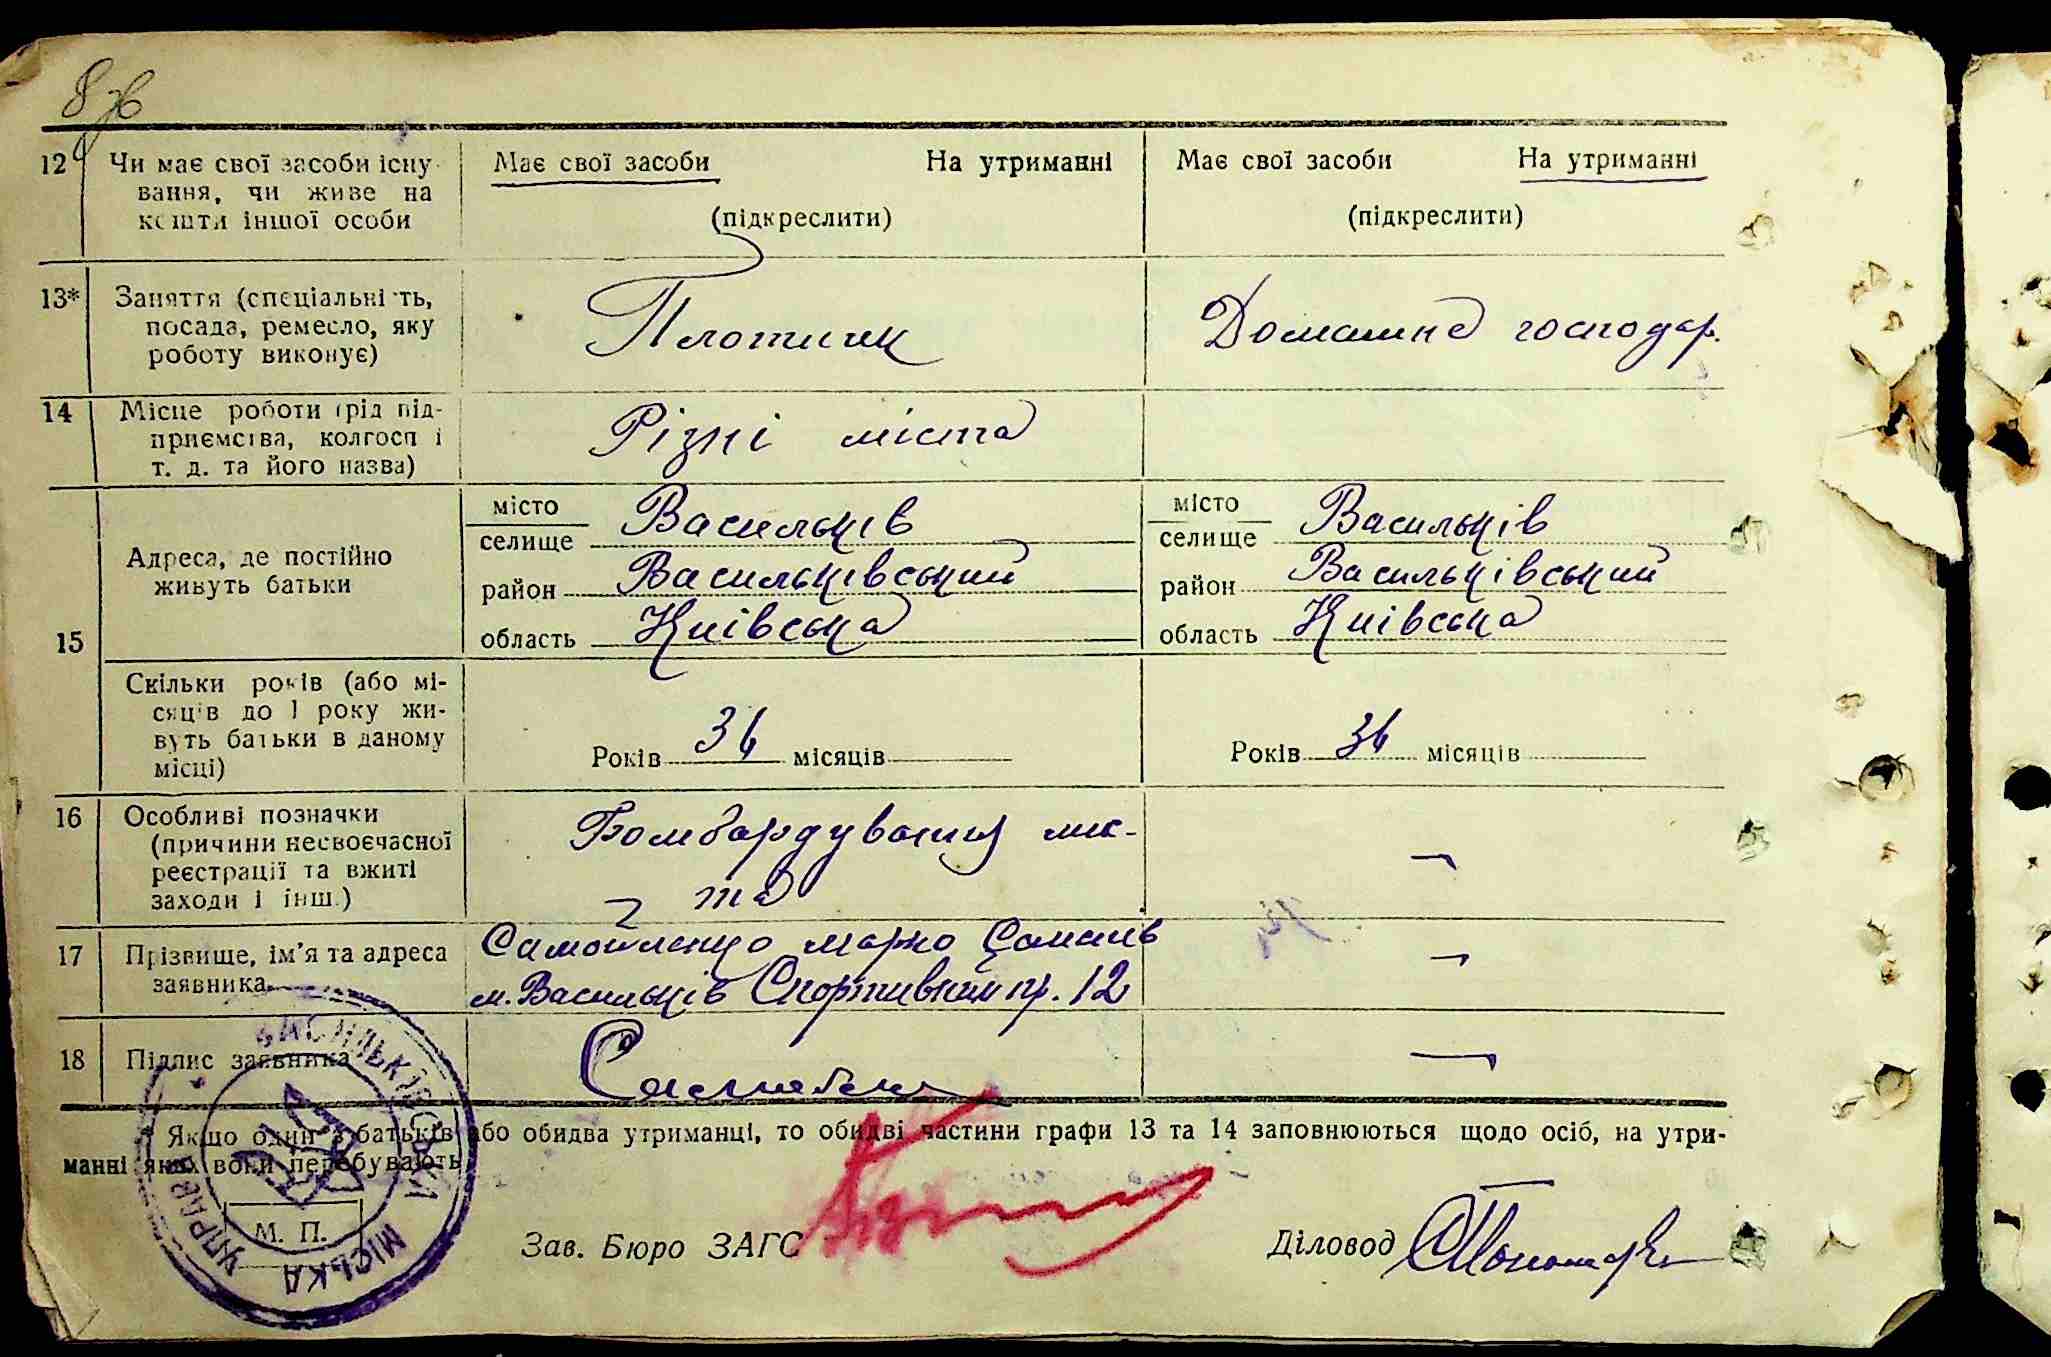 8зв
12 Чи має свої засоби існу- Має свої засоби На утриманні Має свої засоби На утриманні
вання, чи живе на
кошти іншої особи (підкреслити) (підкреслити)
13* Заняття (спеціальність,
посада, ремесло, яку Плотник Домашнє господар.
роботу виконує)
14 Місце роботи (рід під-
приємства, колгосп і Різні міста
т. д. та його назва)
місто Васильків місто Васильків
селище селище
15 Адреса, де постійно
живуть батьки район Васильківський район Васильківський
область Київська область Київська
Скільки років (або мі-
сяців до 1 року жи-
вуть батьки в даному Років 36 місяців Років 36 місяців
місці)
16 Особливі позначки Бомбардування міс-
(причини несвоєчасної —
реєстрації та вжиті
заходи і інш.) та
17 Прізвище, ім’я та адреса Самойленко Марко —
заявника м. Васильків Спортивний пр. 12
18 Підпис заявника —
* Якщо один з батьків або обидва утриманці, то обидві частини графи 13 та 14 заповнюються щодо осіб, на утри-
манні яких вони перебувають
М. П.
Зав. Бюро ЗАГС Діловод
ВАСИЛЬКІВСЬКА МІСЬКА УПРАВА